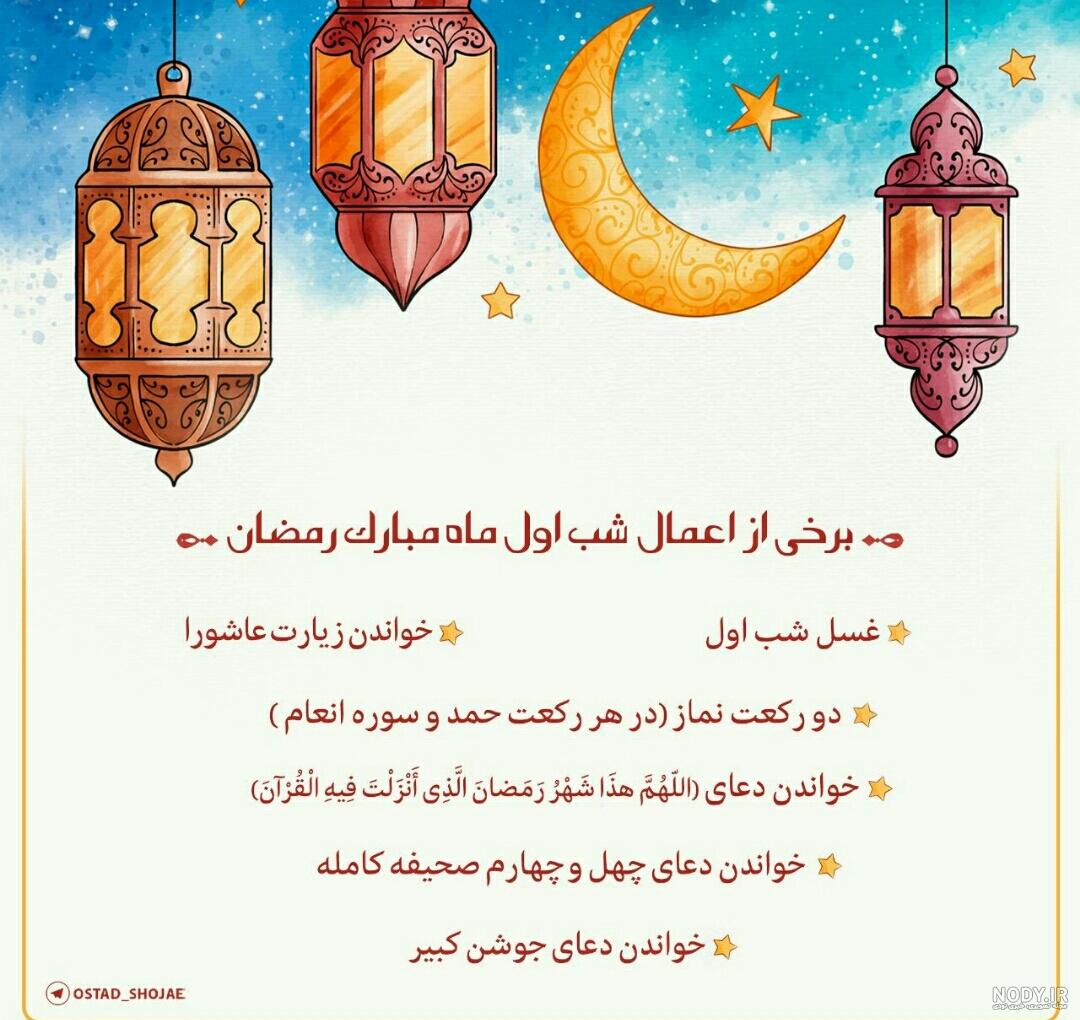 برخی از اعمال شب اول ماه مبارک رمضان
غسل شب اول
خواندن زیارت عاشورا
دو رکعت نماز (در هر رکعت حمد و سوره انعام )
خواندن دعای (اللّهُمَّ هذَا شَهْرُ رَمَضانَ الَّذِی أَنْزَلْتَ فِیهِ الْقُرْآنَ)
خواندن دعای چهل و چهارم صحیفه کامله
خواندن دعای جوشن کبیر
OSTAD_SHOJAE
NODY.IR